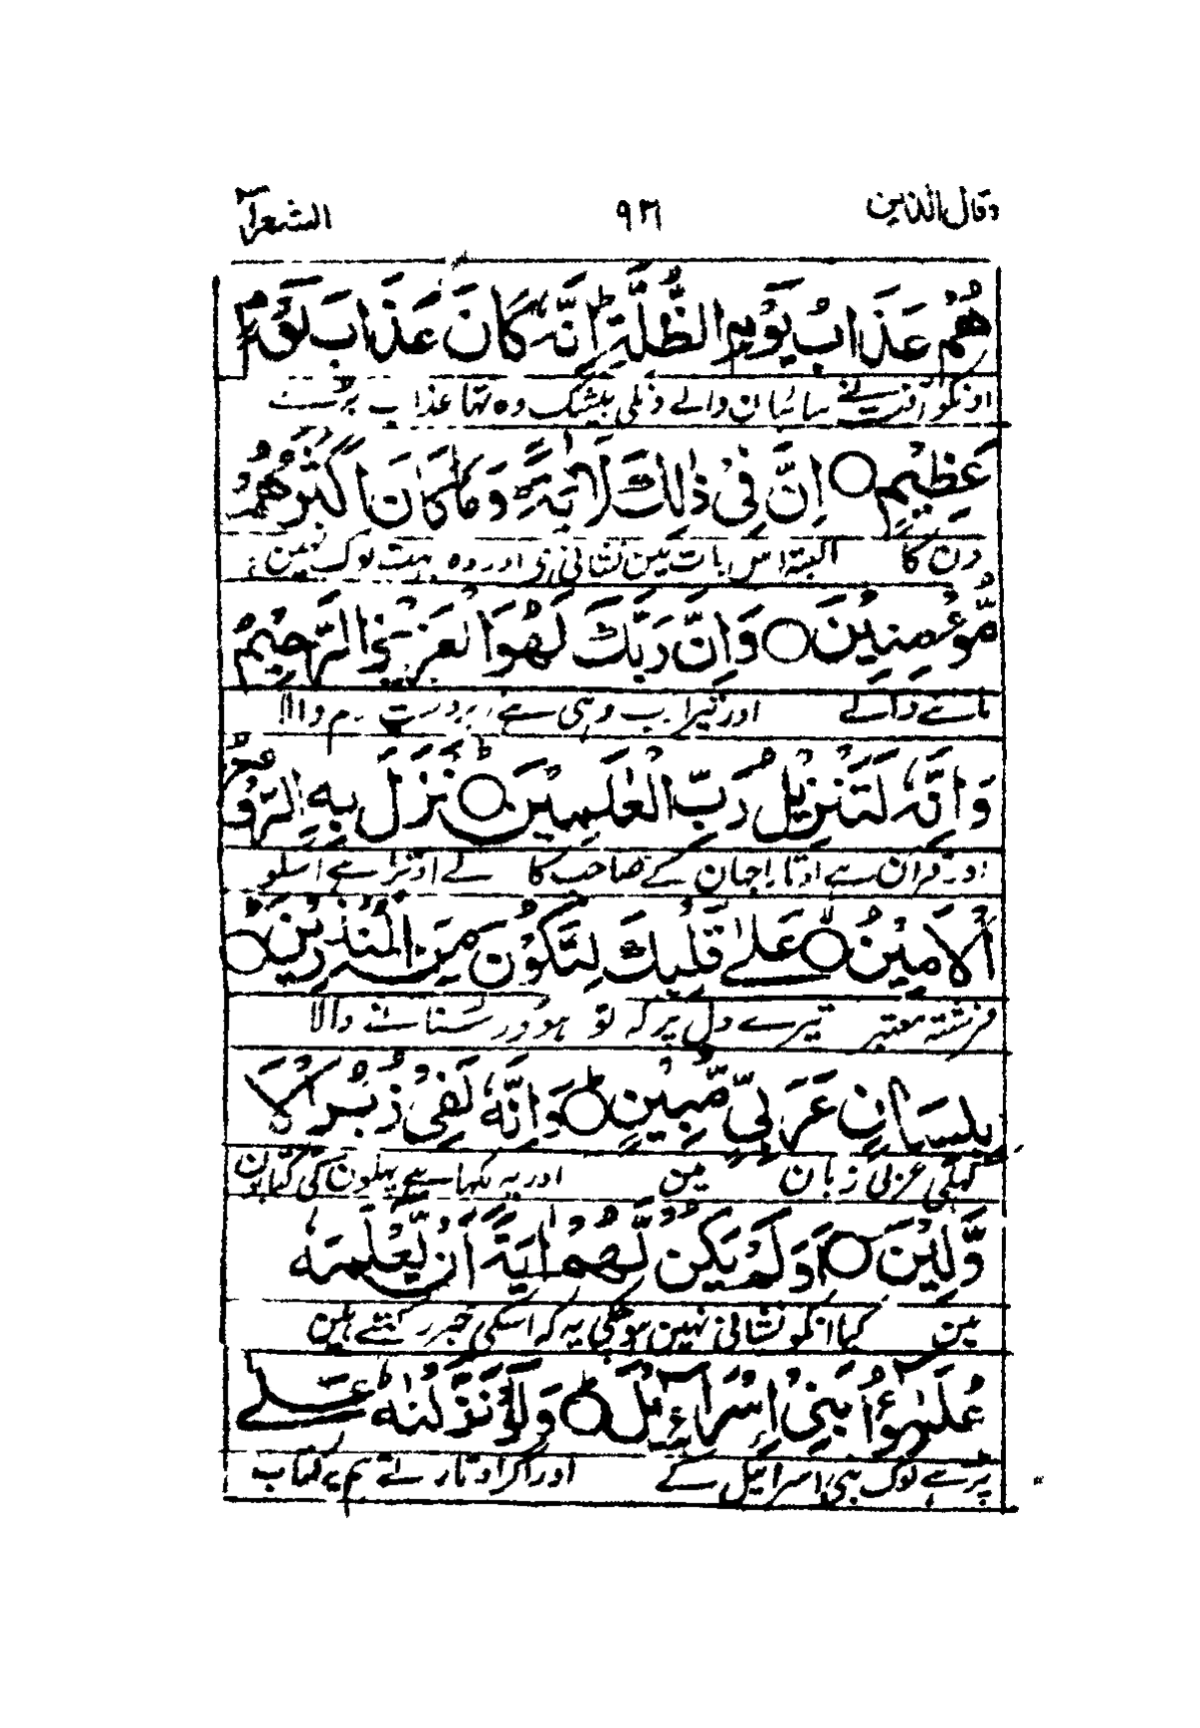 وقال الذین ۹۳۶ الشعرآء
هُمْ عَذَابُ يَوْمِ الظُّلَّةِ ؕ اِنَّهٗ كَانَ عَذَابَ يَوْمٍ
اونکو آفت نے سائبان والے دنکی بیشک وہ تہا عذاب بڑے
عَظِيْمٍ ○ اِنَّ فِيْ ذٰلِكَ لَاٰيَةً ؕ وَمَا كَانَ اَكْثَرُهُمْ
دن کا البتہ اس بات مین نشانی ہی اور وہ بہت لوگ نہین
مُّؤْمِنِيْنَ ○ وَاِنَّ رَبَّكَ لَهُوَ الْعَزِيْزُ الرَّحِيْمُ
ماننے والے اور تیرا رب وہی ہے زبردست رحم والا
وَاِنَّهٗ لَتَنْزِيْلُ رَبِّ الْعٰلَمِيْنَ ○ؕ نَزَلَ بِهِ الرُّوْحُ
اور قرآن ہے اوتارا جہان کے صاحب کا لے اوترا ہے اسکو
الْاَمِيْنُ ○ۙ عَلٰى قَلْبِكَ لِتَكُوْنَ مِنَ الْمُنْذِرِيْنَ ○
فرشتہ معتبر تیرے دل پر کہ تو ہو ڈر سنانے والا
بِلِسَانٍ عَرَبِيٍّ مُّبِيْنٍ ○ؕ وَاِنَّهٗ لَفِيْ زُبُرِ الْاَ
کہلی عربی زبان مین اور یہ لکہا ہے پہلون کی کتابون
وَّلِيْنَ ○ اَوَلَمْ يَكُنْ لَّهُمْ اٰيَةً اَنْ يَّعْلَمَهٗ
مین کیا انکو نشانی نہین ہوچکی یہ کہ اسکی خبر رکہتے ہین
عُلَمٰٓؤُا بَنِيْٓ اِسْرَآءِيْلَ ○ؕ وَلَوْ نَزَّلْنٰهُ عَلٰى
پڑہے لوگ بنی اسرائیل کے اور اگر اوتارتے ہم یہ کتاب